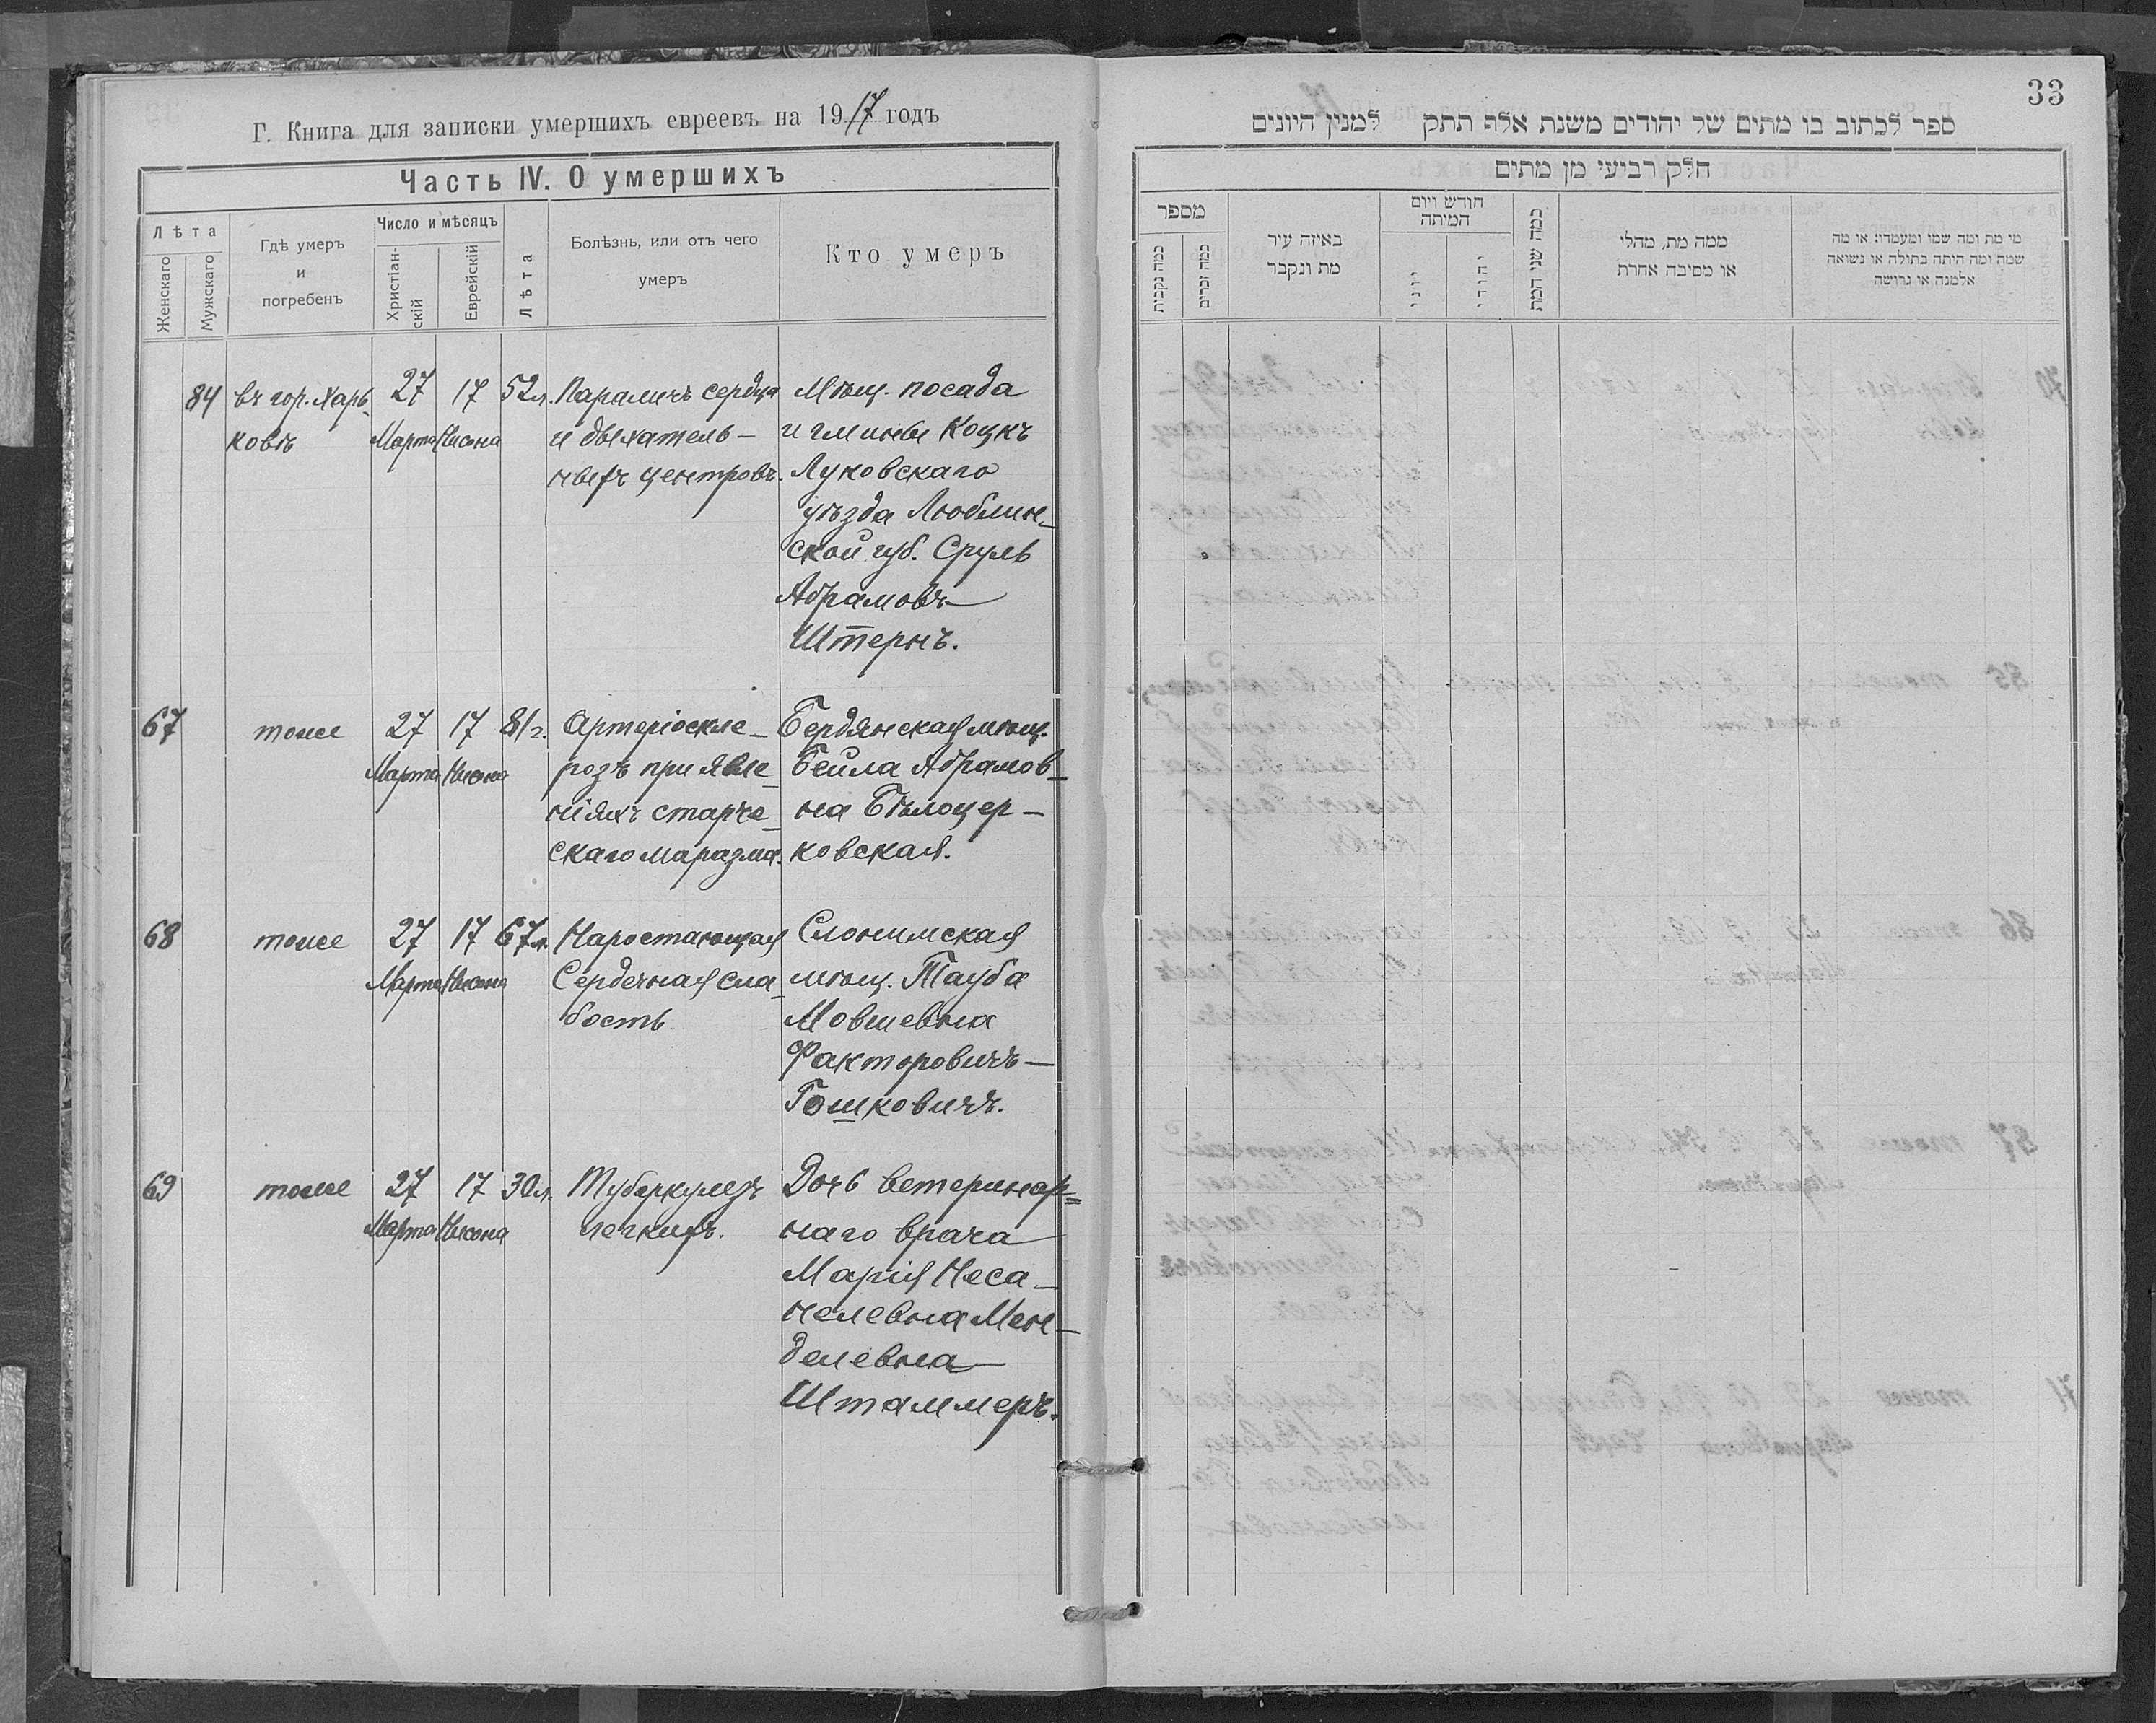 Г. Книга для записки умершихъ евреевъ на 1917 годъ
Часть IV. О умершихъ
Лѣта
Женскаго
Мужскаго
Гдѣ умеръ
и
погребенъ
Число и мѣсяцъ
Христіан-
скій
Еврейскій
Лѣта
Болѣзнь, или отъ чего
умеръ
Кто умеръ
84 въ гор. Харь- 27 17 52 л. Параличъ сердца Мѣщ. посада
ковѣ Марта Нисона и дыхатель- и гмины Коцкъ
ныхъ центровъ. Луковскаго
уѣзда Люблин-
ской губ. Сруль
Абрамовъ
Штернъ.
67 тоже 27 17 81 г. Артеріоскле- Бердянская мѣщ.
Марта Нисона розъ при явле- Бейла Абрамов-
ніяхъ старче- на Бѣлоцер-
скаго маразма. ковская.
68 тоже 27 17 67 л. Наростающая Слонимская
Марта Нисона Сердечная сла- мѣщ. Тауба
бость Мовшевна
Факторовичъ-
Гошковичъ.
69 тоже 27 17 30 л. Туберкулезъ Дочь ветеринар=
Марта Нисона легкихъ. наго врача
Марія Неса-
нелевна Мен-
делевна
Штаммеръ.
33
ספר לכתוב בו מתים של יהודים משנת אלף תתק למנין היונים
חלק רביעי מן מתים
מספר
כמה נקבות
כמה זכרים
באיזה עיר
מת ונקבר
חודש ויום
המיתה
יוני
יהודי
כמה שני המת
ממה מת, מחלי
או מסיבה אחרת
מי מת ומה שמו ומעמדו: או מה
שמה ומה היתה בתולה או נשואה
אלמנה או גרושה